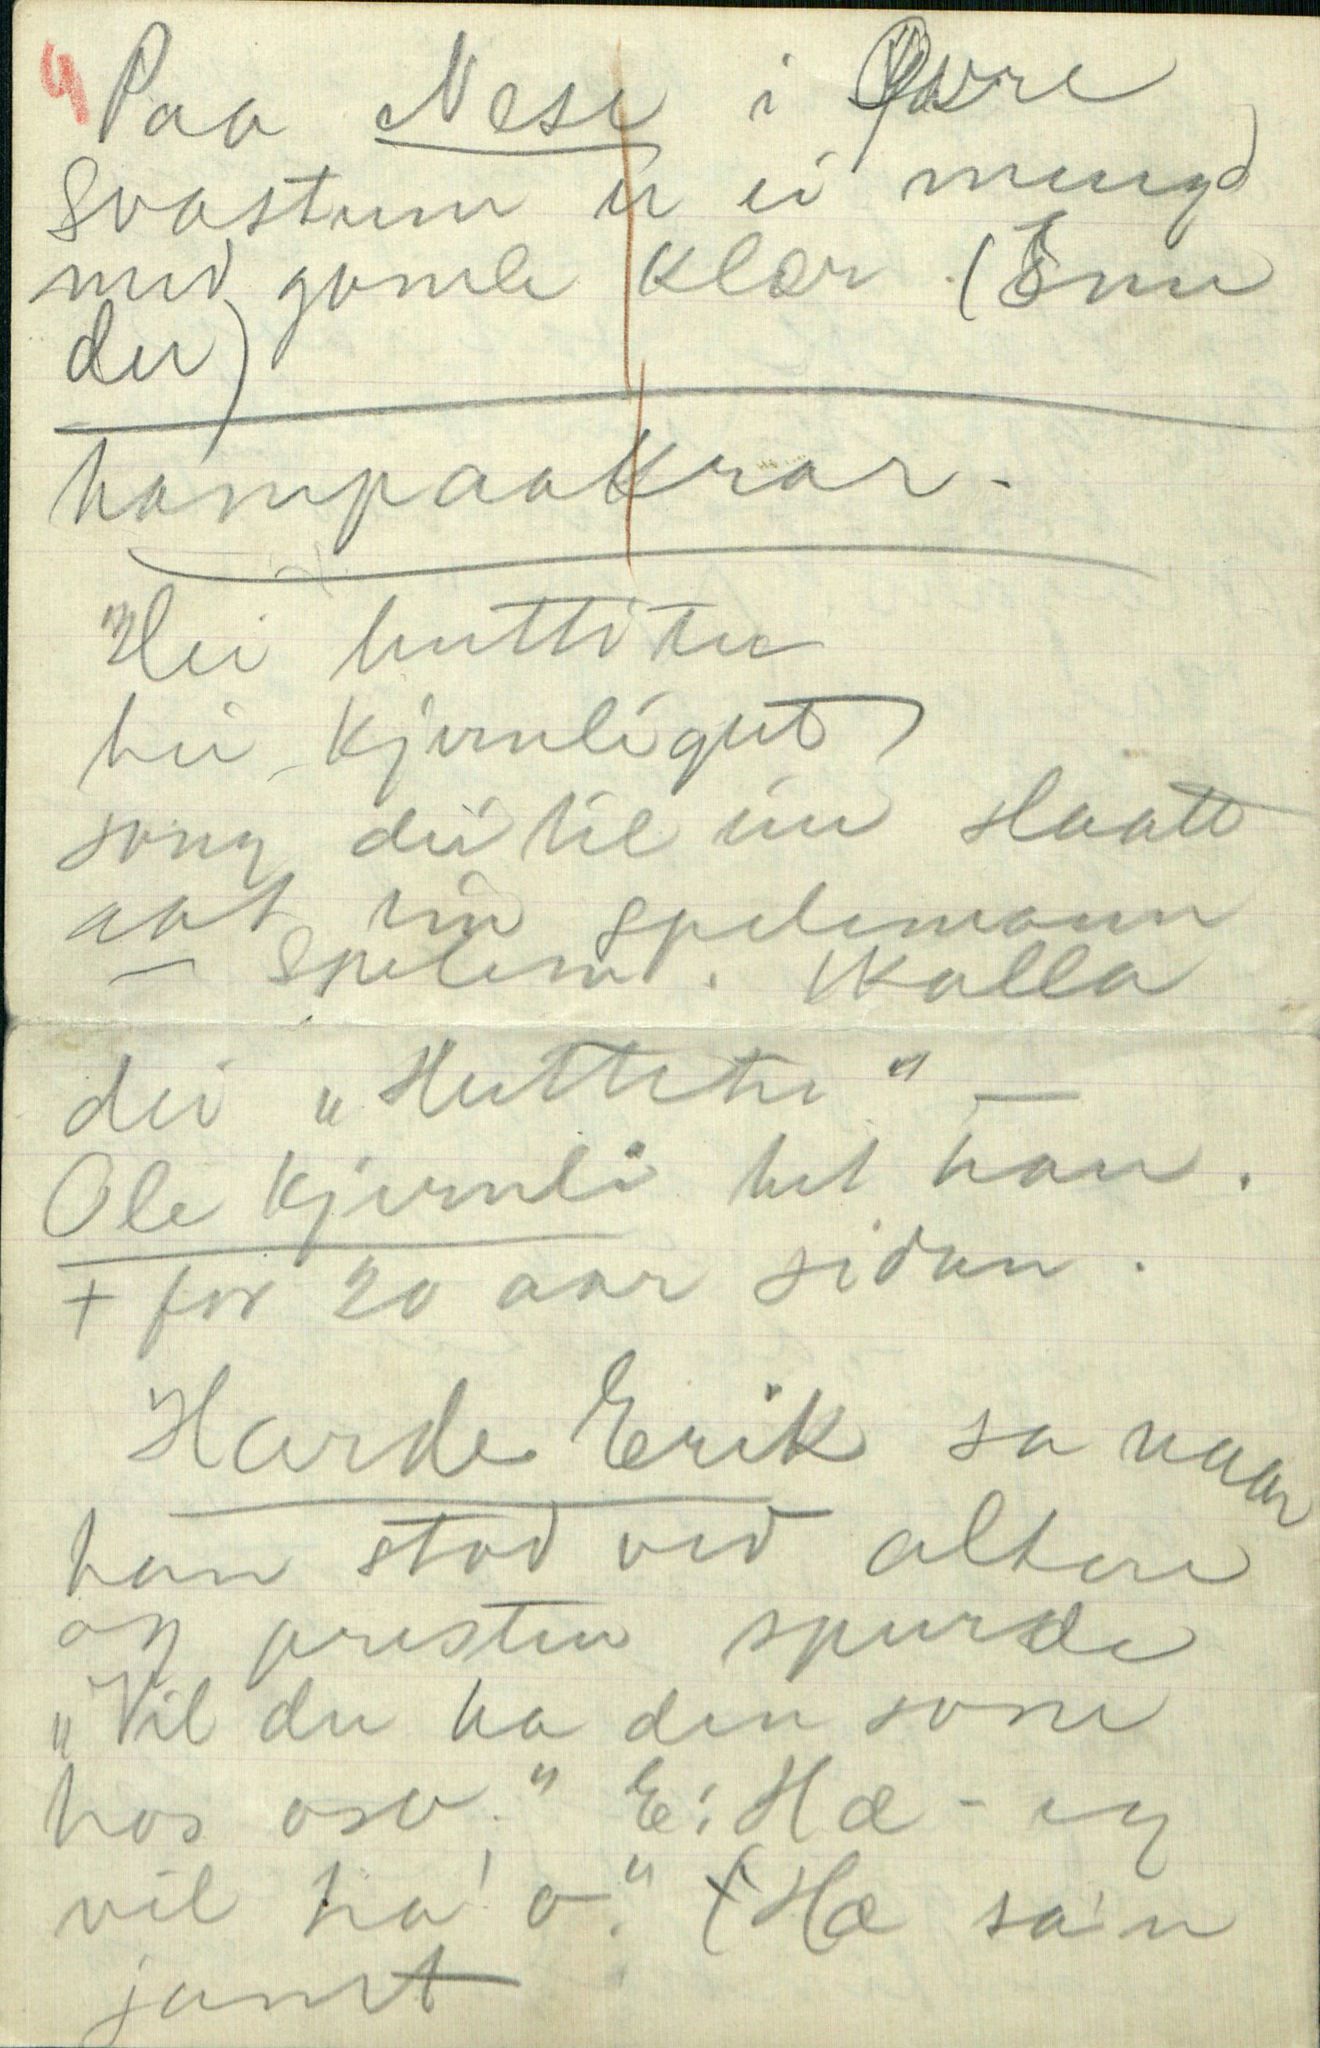 4
Paa Nese i Øvre
Svastum er ei mengd
med gamle klær. (Enn
der)
hampaakrar.
"Hei huttetu
hei kjernligut
song dei til ein slaatt
aat ein spelemann
— Spelem. kalla
dei „Huttetu" —
Ole Kjernli het han.
+ for 20 aar sidan.
Harde Erik sa naar
han stod ved altere
og presten spurde
„Vil du ha den som
hos osv." E: Hæ - eg
vil ha' o." (Hæ sa'n
jamt